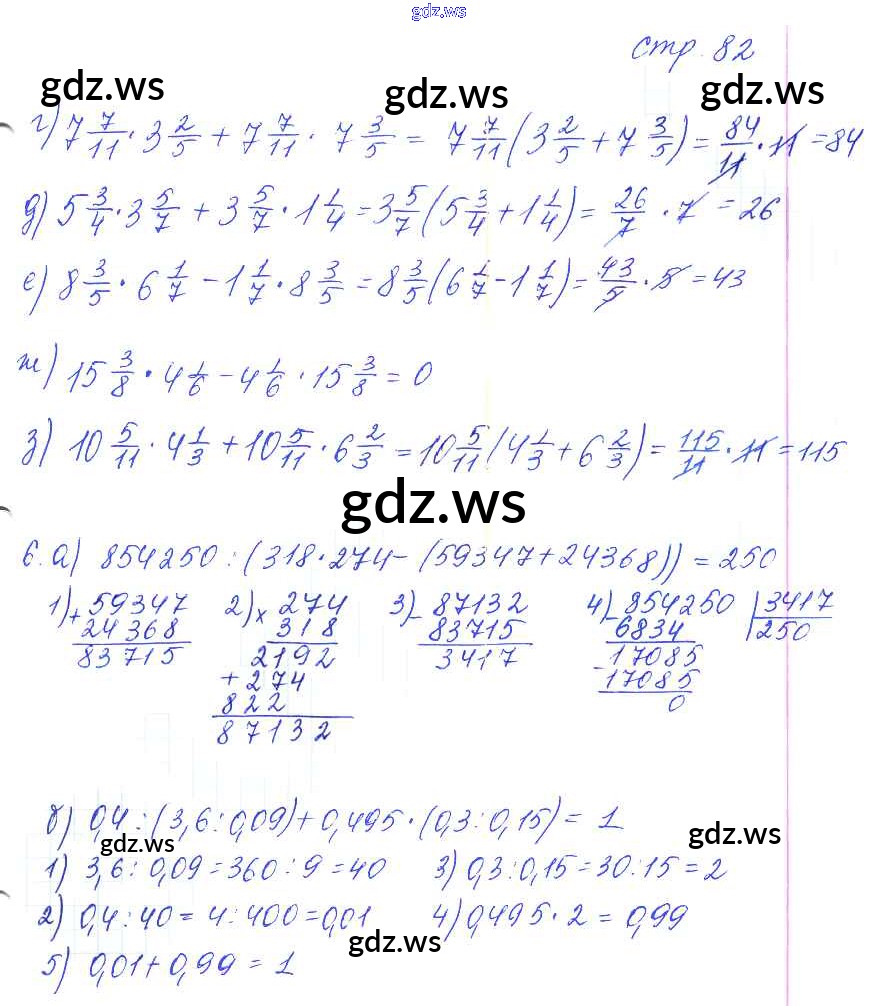 gdz.ws
стр. 82
gdz.ws gdz.ws gdz.ws
г) 7 7/11 · 3 2/5 + 7 7/11 · 7 3/5 = 7 7/11 (3 2/5 + 7 3/5) = 84/11 · 11 = 84
д) 5 3/4 · 3 5/7 + 3 5/7 · 1 1/4 = 3 5/7 (5 3/4 + 1 1/4) = 26/7 · 7 = 26
е) 8 3/5 · 6 1/7 - 1 1/7 · 8 3/5 = 8 3/5 (6 1/7 - 1 1/7) = 43/5 · 5 = 43
ж) 15 3/8 · 4 1/6 - 4 1/6 · 15 3/8 = 0
з) 10 5/11 · 4 1/3 + 10 5/11 · 6 2/3 = 10 5/11 (4 1/3 + 6 2/3) = 115/11 · 11 = 115
gdz.ws
6. а) 854250 : (318 · 274 - (59347 + 24368)) = 250
1) + 59347 2) x 274 3) - 87132 4) - 854250 | 3417
24368 318 83715 6834 250
83715 2192 3417 - 17085
+ 274 17085
822 0
87132
б) 0,4 : (3,6 : 0,09) + 0,495 · (0,3 : 0,15) = 1
gdz.ws gdz.ws
1) 3,6 : 0,09 = 360 : 9 = 40 3) 0,3 : 0,15 = 30 : 15 = 2
2) 0,4 : 40 = 4 : 400 = 0,01 4) 0,495 · 2 = 0,99
gdz.ws
5) 0,01 + 0,99 = 1